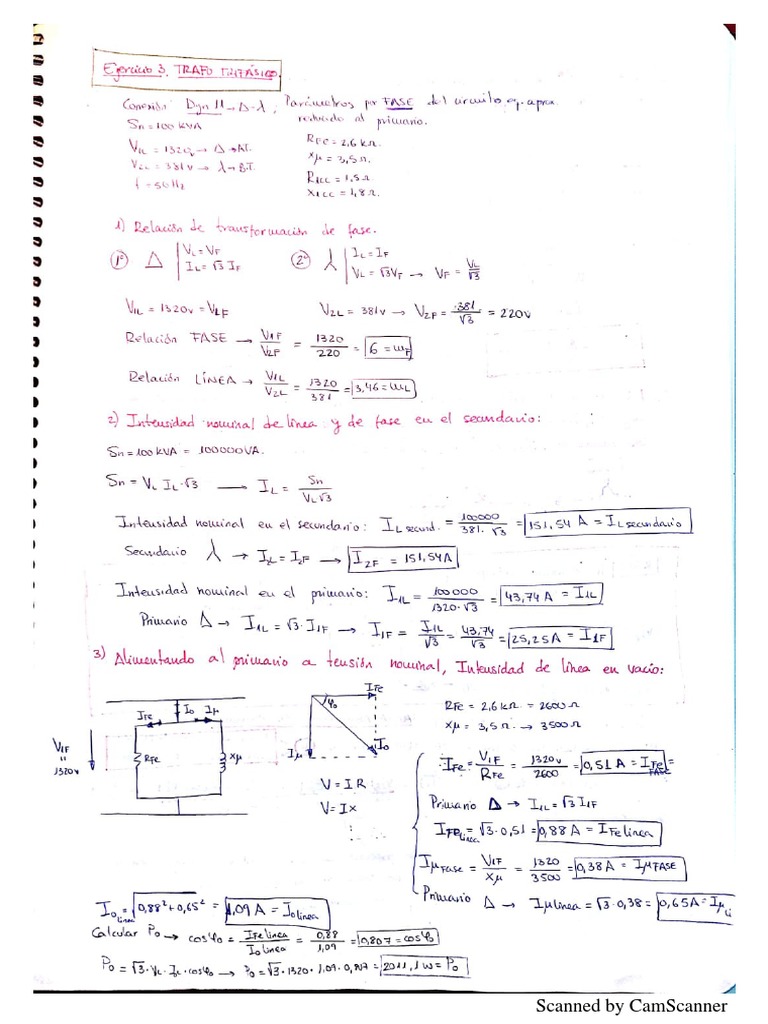 Ejercicio 3. TRAFO TRIFÁSICO.
Conexión Dyn 11 → Δ-⅄ ; Parámetros por FASE del circuito eq. aprox.
reducido al primario.
Sn = 100 KVA
V1L = 1320 → Δ → A.T.
V2L = 381v → ⅄ → B.T.
f = 50 Hz
RFe = 2,6 kΩ.
Xμ = 3,5 Ω.
R1cc = 1,5 Ω.
X1cc = 1,8 Ω.
1) Relación de transformación de fase.
1º Δ | VL = VF
IL = √3 IF
2º ⅄ | IL = IF
VL = √3 VF → VF = VL/√3
V1L = 1320v = V1F V2L = 381v → V2F = 381/√3 = 220v
Relación FASE → V1F/V2F = 1320/220 = 6 = mF
Relación LÍNEA → V1L/V2L = 1320/381 = 3,46 = mL
2) Intensidad nominal de línea y de fase en el secundario:
Sn = 100 KVA = 100000 VA.
Sn = VL IL·√3 → IL = Sn/VL√3
Intensidad nominal en el secundario: IL secund. = 100000/381·√3 = 151,54 A = IL secundario
Secundario ⅄ → I2L = I2F → I2F = 151,54A
Intensidad nominal en el primario: I1L = 100000/1320·√3 = 43,74 A = I1L
Primario Δ → I1L = √3·I1F → I1F = I1L/√3 = 43,74/√3 = 25,25A = I1F
3) Alimentando al primario a tensión nominal, Intensidad de línea en vacío:
IFe Io Iμ
V1F = 1320v
RFe Xμ
IFe φo Iμ Io
V = I R
V = I X
RFe = 2,6 kΩ = 2600 Ω
Xμ = 3,5 Ω → 3500 Ω
IFe = V1F/RFe = 1320v/2600 = 0,51 A = IFe FASE
Primario Δ → I1L = √3 I1F
IFe linea = √3·0,51 = 0,88 A = IFe linea
Iμ FASE = V1F/Xμ = 1320/3500 = 0,38A = Iμ FASE
Primario Δ → Iμ linea = √3·0,38 = 0,65A = Iμ li
Io linea = √0,88²+0,65² = 1,09 A = Io linea
Calcular Po → cosφo = IFe linea/Io linea = 0,88/1,09 = 0,807 = cosφo
Po = √3·VL·IL·cosφo → Po = √3·1320·1,09·0,807 = 2011,1 w = Po
Scanned by CamScanner